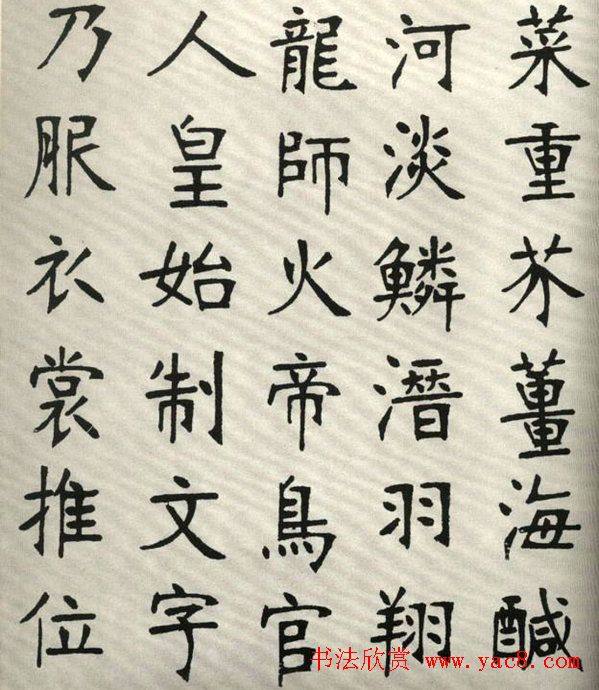 菜重芥薑海醎
河淡鱗潛羽翔
龍師火帝鳥官
人皇始制文字
乃服衣裳推位
书法欣赏 www.yac8.com